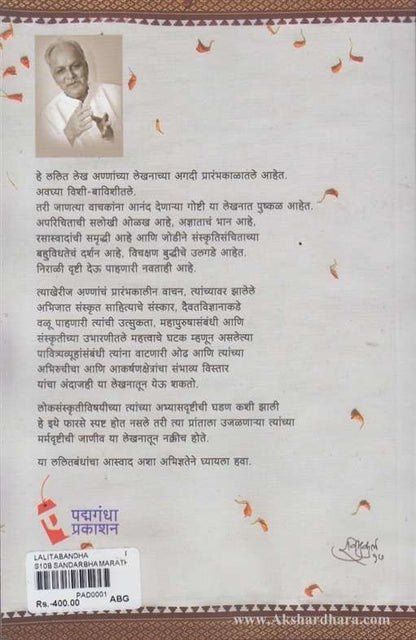 www.Akshardhara.com
हे ललित लेख अण्णांच्या लेखनाच्या अगदी प्रारंभकाळातले आहेत.
अवघ्या विशी-बाविशीतले.
तरी जाणत्या वाचकांना आनंद देणाऱ्या गोष्टी या लेखनात पुष्कळ आहेत.
अपरिचिताची सलोखी ओळख आहे, अज्ञाताचं भान आहे,
रसास्वादांची समृद्धी आहे आणि जोडीने संस्कृतिसंचिताच्या
बहुविधतेचं दर्शन आहे, विचक्षण बुद्धीचे उलगडे आहेत.
निराळी दृष्टी देऊ पाहणारी नवताही आहे.
त्याखेरीज अण्णांचं प्रारंभकालीन वाचन, त्यांच्यावर झालेले
अभिजात संस्कृत साहित्याचे संस्कार, दैवतविज्ञानाकडे
वळू पाहणारी त्यांची उत्सुकता, महापुरुषासंबंधी आणि
संस्कृतीच्या उभारणीतले महत्त्वाचे घटक म्हणून असलेल्या
पावित्र्यव्यूहांसंबंधी त्यांना वाटणारी ओढ आणि त्यांच्या
अभिरुचीचा आणि आकर्षणक्षेत्रांचा संभाव्य विस्तार
यांचा अंदाजही या लेखनातून येऊ शकतो.
लोकसंस्कृतीविषयीच्या त्यांच्या अभ्यासदृष्टीची घडण कशी झाली
हे इथे फारसे स्पष्ट होत नसले तरी त्या प्रांताला उजळणाऱ्या त्यांच्या
मर्मदृष्टीची जाणीव या लेखनातून नक्कीच होते.
या ललितबंधांचा आस्वाद अशा अभिज्ञतेने घ्यायला हवा.
पद्मगंधा
प्रकाशन
LALITABANDHA
S10B SANDARBHA MARATH
PAD0001
Rs.-400.00 ABG
www.Akshardhara.com